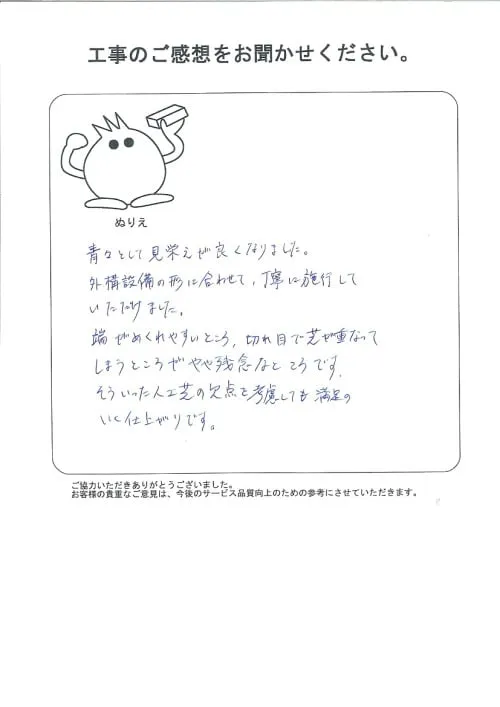 工事のご感想をお聞かせください。
ぬりえ
青々として見栄えが良くなりました。
外構設備の形に合わせて、丁寧に施行して
いただけました。
端がめくれやすいところ、切れ目で芝が重なって
しまうところがやや残念なところです。
そういった人工芝の欠点を考慮しても満足の
いく仕上がりです。
ご協力いただきありがとうございました。
お客様の貴重なご意見は、今後のサービス品質向上のための参考にさせていただきます。